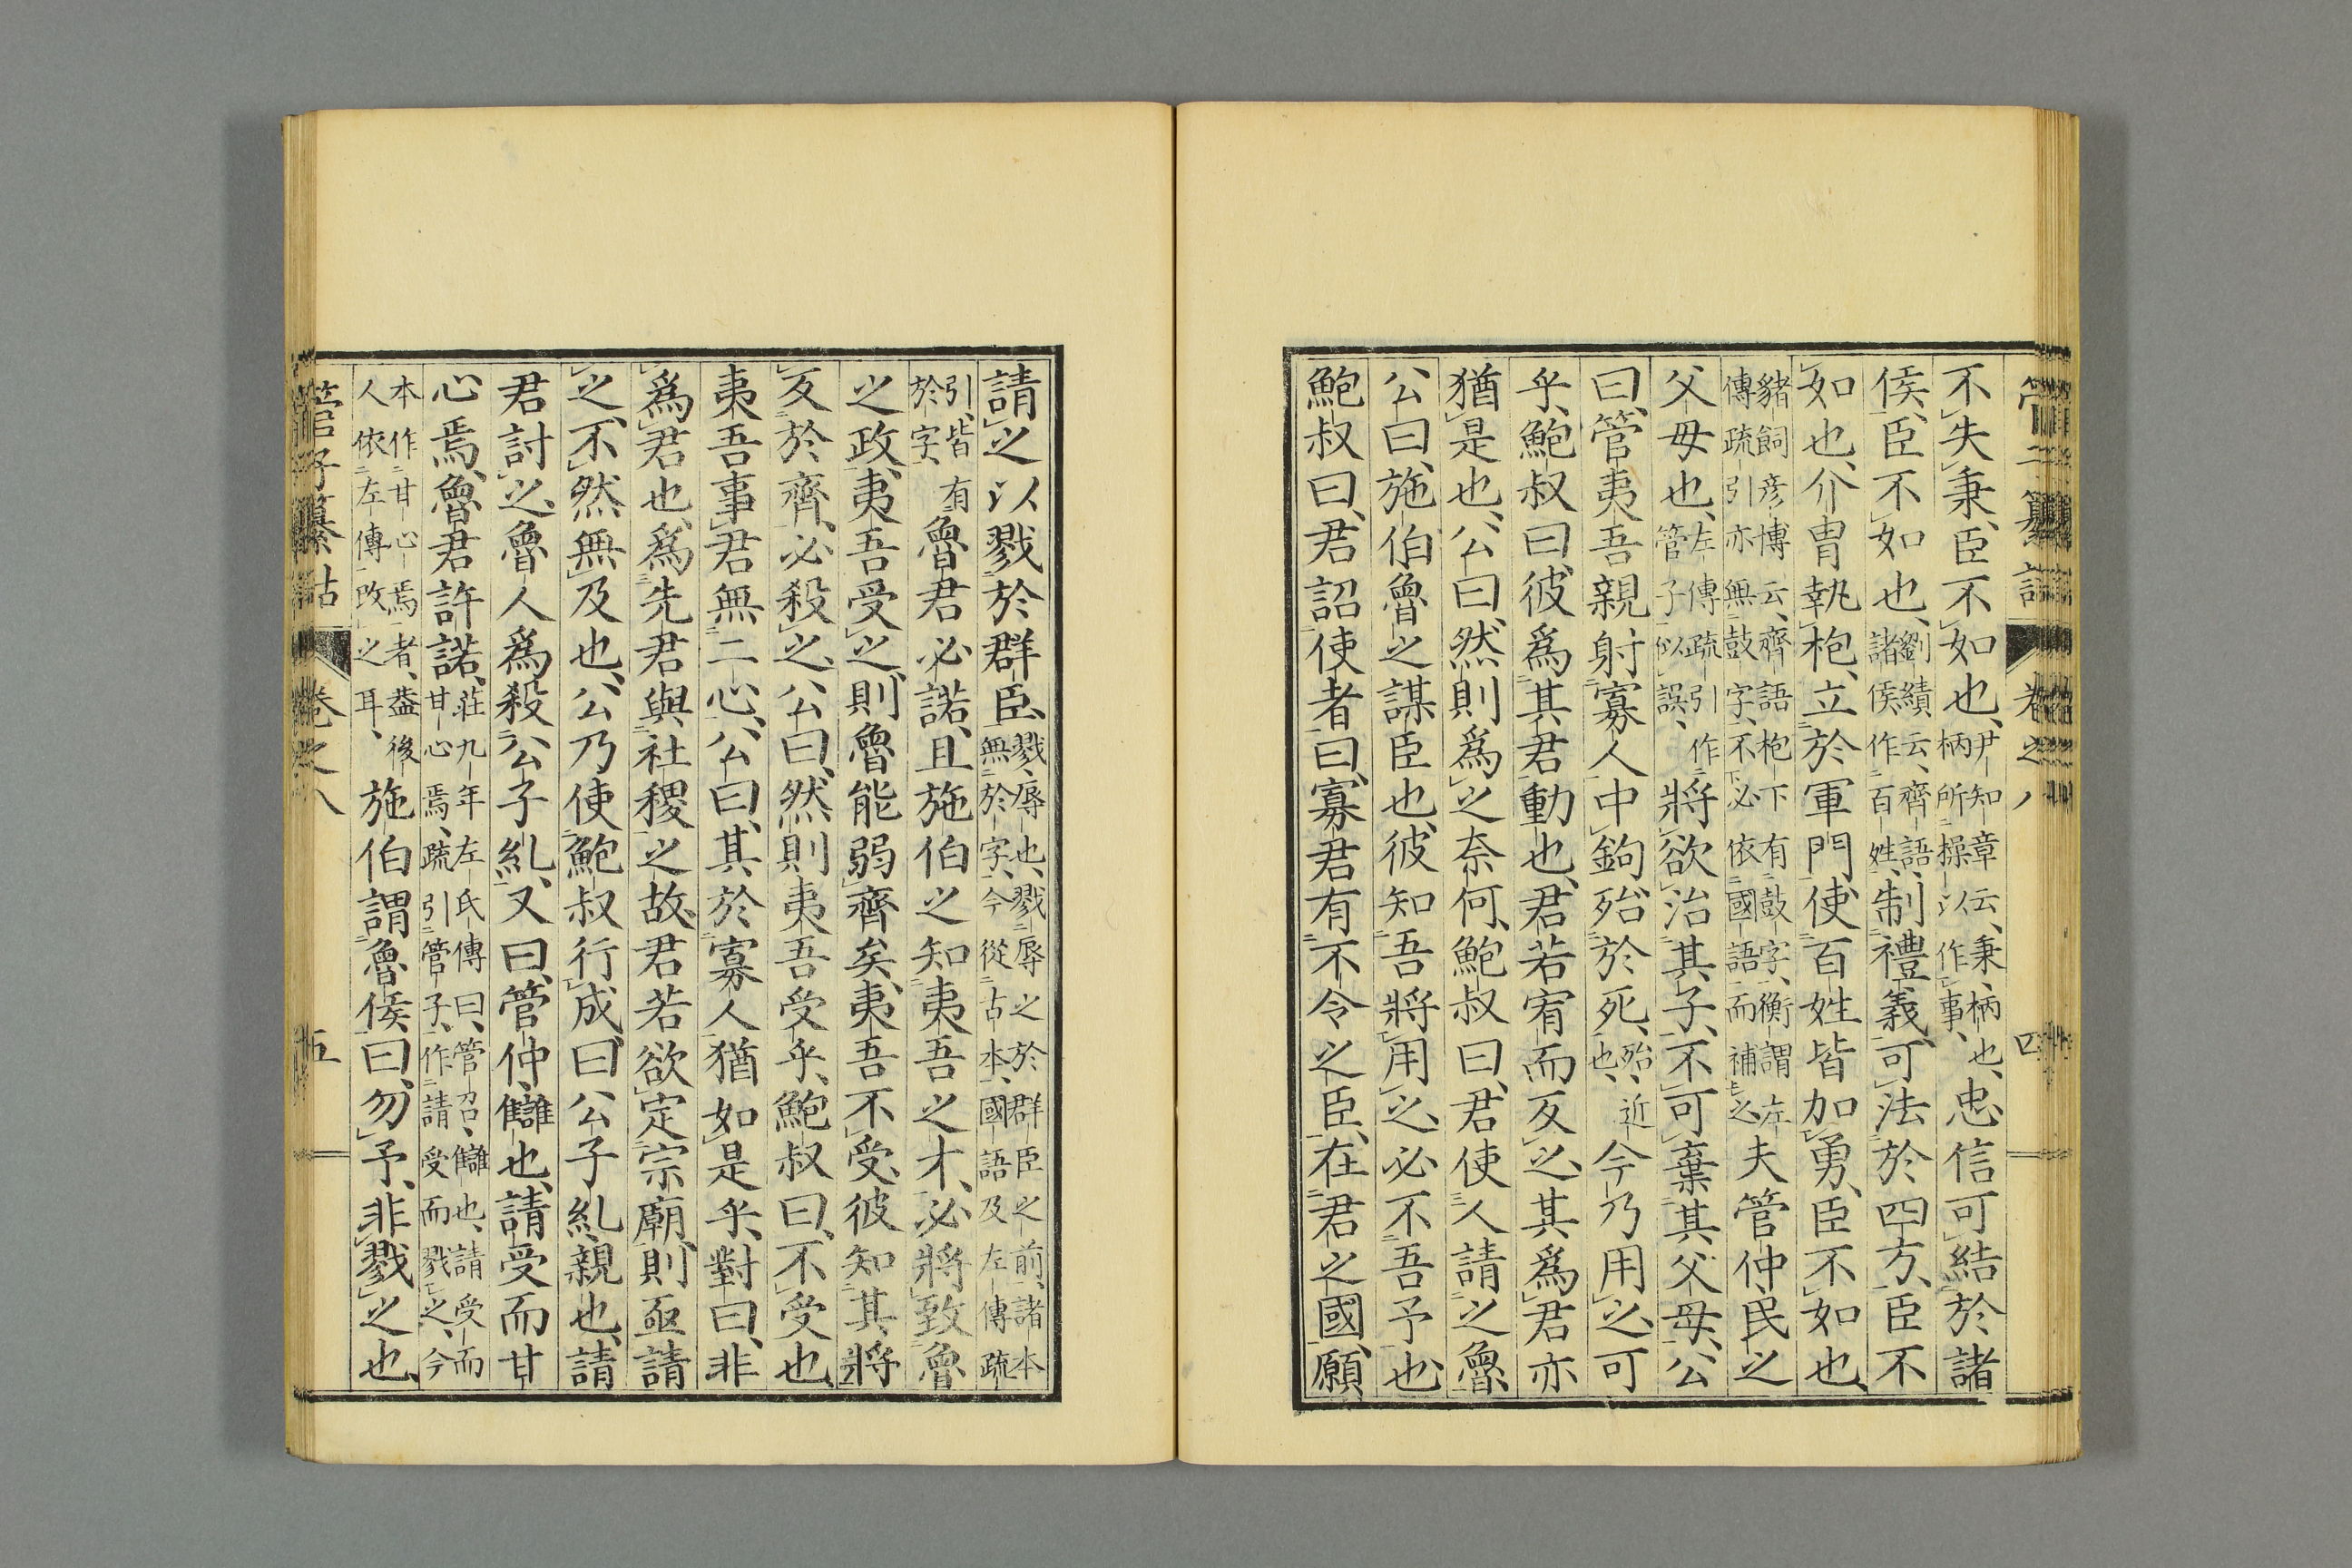 管子纂詁 卷之八 四
不失秉、臣不如也、尹知章云、秉、柄也、柄所操以作事、忠信可結於諸
侯、臣不如也、劉績云、齊語、諸侯作百姓、制禮義、可法於四方、臣不
如也、介冑執枹、立於軍門、使百姓皆加勇、臣不如也、
豬飼彦博云、齊語枹下有鼓字、衡謂左傳疏引亦無鼓字、不必依國語而補之夫管仲、民之
父母也、左傳疏引作管子似誤、將欲治其子、不可棄其父母、公
曰、管夷吾親射寡人中鉤、殆於死、殆、近也、今乃用之、可
乎、鮑叔曰、彼爲其君動也、君若宥而反之、其爲君亦
猶是也、公曰、然則爲之奈何、鮑叔曰、君使人請之魯
公曰、施伯魯之謀臣也、彼知吾將用之、必不吾予也
鮑叔曰、君詔使者曰、寡君有不令之臣、在君之國、願
請之以戮於群臣、戮、辱也、戮辱之於群臣之前、諸本無於字、今從古本、國語及左傳疏
引、皆有於字、魯君必諾、且施伯之知夷吾之才、必將致魯
之政、夷吾受之、則魯能弱齊矣、夷吾不受、彼知其將
反於齊、必殺之、公曰、然則夷吾受乎、鮑叔曰、不受也、
夷吾事君無二心、公曰、其於寡人猶如是乎、對曰、非
爲君也、爲先君與社稷之故、君若欲定宗廟、則亟請
之、不然無及也、公乃使鮑叔行成、曰、公子糺、親也、請
君討之、魯人爲殺公子糺、又曰、管仲、讎也、請受而甘
心焉、魯君許諾、莊九年左氏傳曰、管召、讎也、請受而甘心焉、疏引管子、作請受而戮之、今
本作甘心焉者、蓋後人依左傳改之耳、施伯謂魯侯曰、勿予、非戮之也、
管子纂詁 卷之八 五